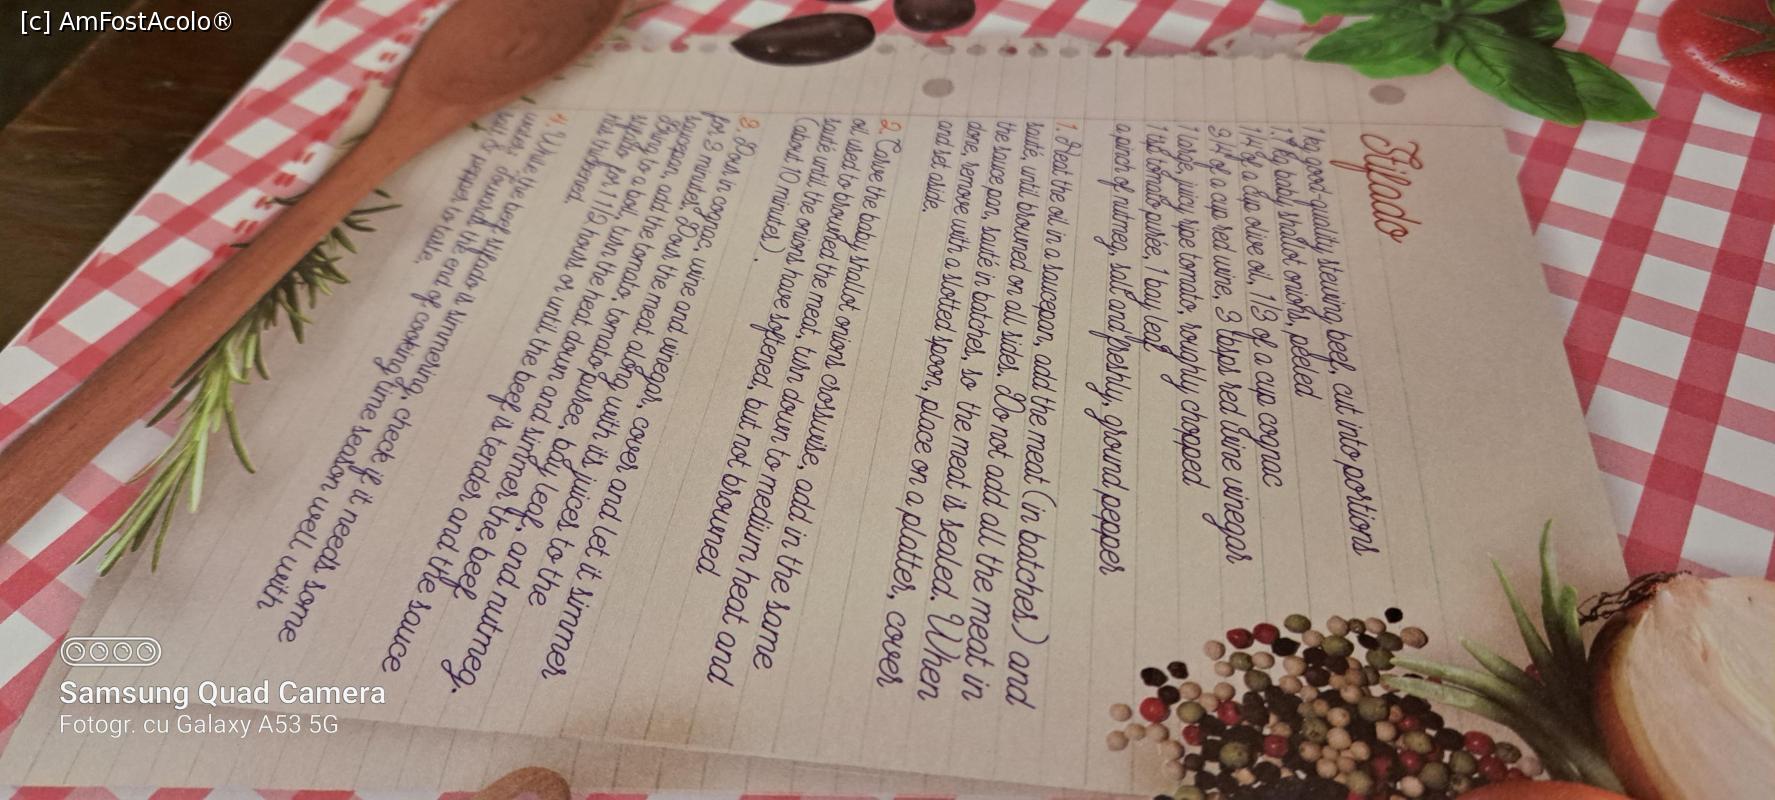 [c] AmFostAcolo®
Stifado
1 kg good-quality stewing beef, cut into portions
1.7 kg baby shallot onions, peeled
1/4 of a cup olive oil, 1/2 of a cup cognac
3/4 of a cup red wine, 3 tbsps red wine vinegar
1 large, juicy ripe tomato, roughly chopped
1 tbsp tomato purée, 1 bay leaf
a pinch of nutmeg, salt and freshly, ground pepper
1. Heat the oil in a saucepan, add the meat (in batches) and
sauté, until browned on all sides. Do not add all the meat in
the sauce pan, sauté in batches, so the meat is sealed. When
done, remove with a slotted spoon, place on a platter, cover
and set aside.
2. Carve the baby shallot onions crosswise, add in the same
oil used to browned the meat, turn down to medium heat and
sauté until the onions have softened, but not browned
(about 10 minutes).
3. Pour in cognac, wine and vinegar, cover and let it simmer
for 2 minutes. Pour the meat along with its juices to the
saucepan, add the tomato, tomato purée, bay leaf, and nutmeg.
Bring to a boil, turn the heat down and simmer the beef
stifado for 1 1/2 hours or until the beef is tender and the sauce
has thickened.
4. While the beef stifado is simmering, check if it needs some
water. Towards the end of cooking time season well with
salt & pepper to taste.
Samsung Quad Camera
Fotogr. cu Galaxy A53 5G